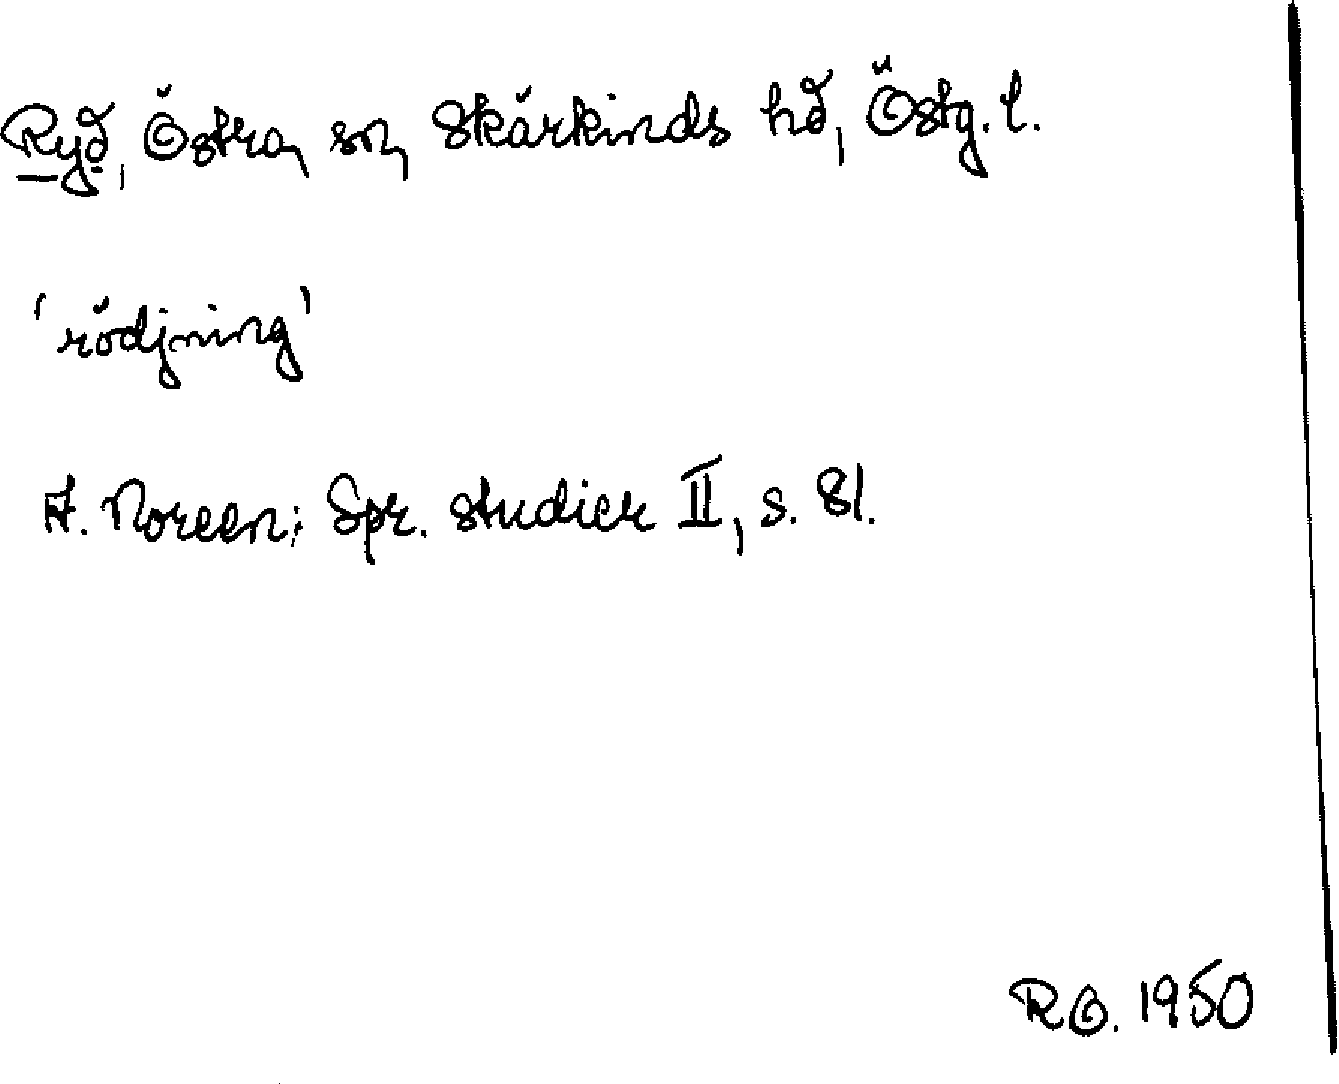 Ryd, Östra, sn, Skärkinds hd, Östg. l.
'rödjning'
A. Noreen: Spr. studier II, s. 81.
RO. 1950